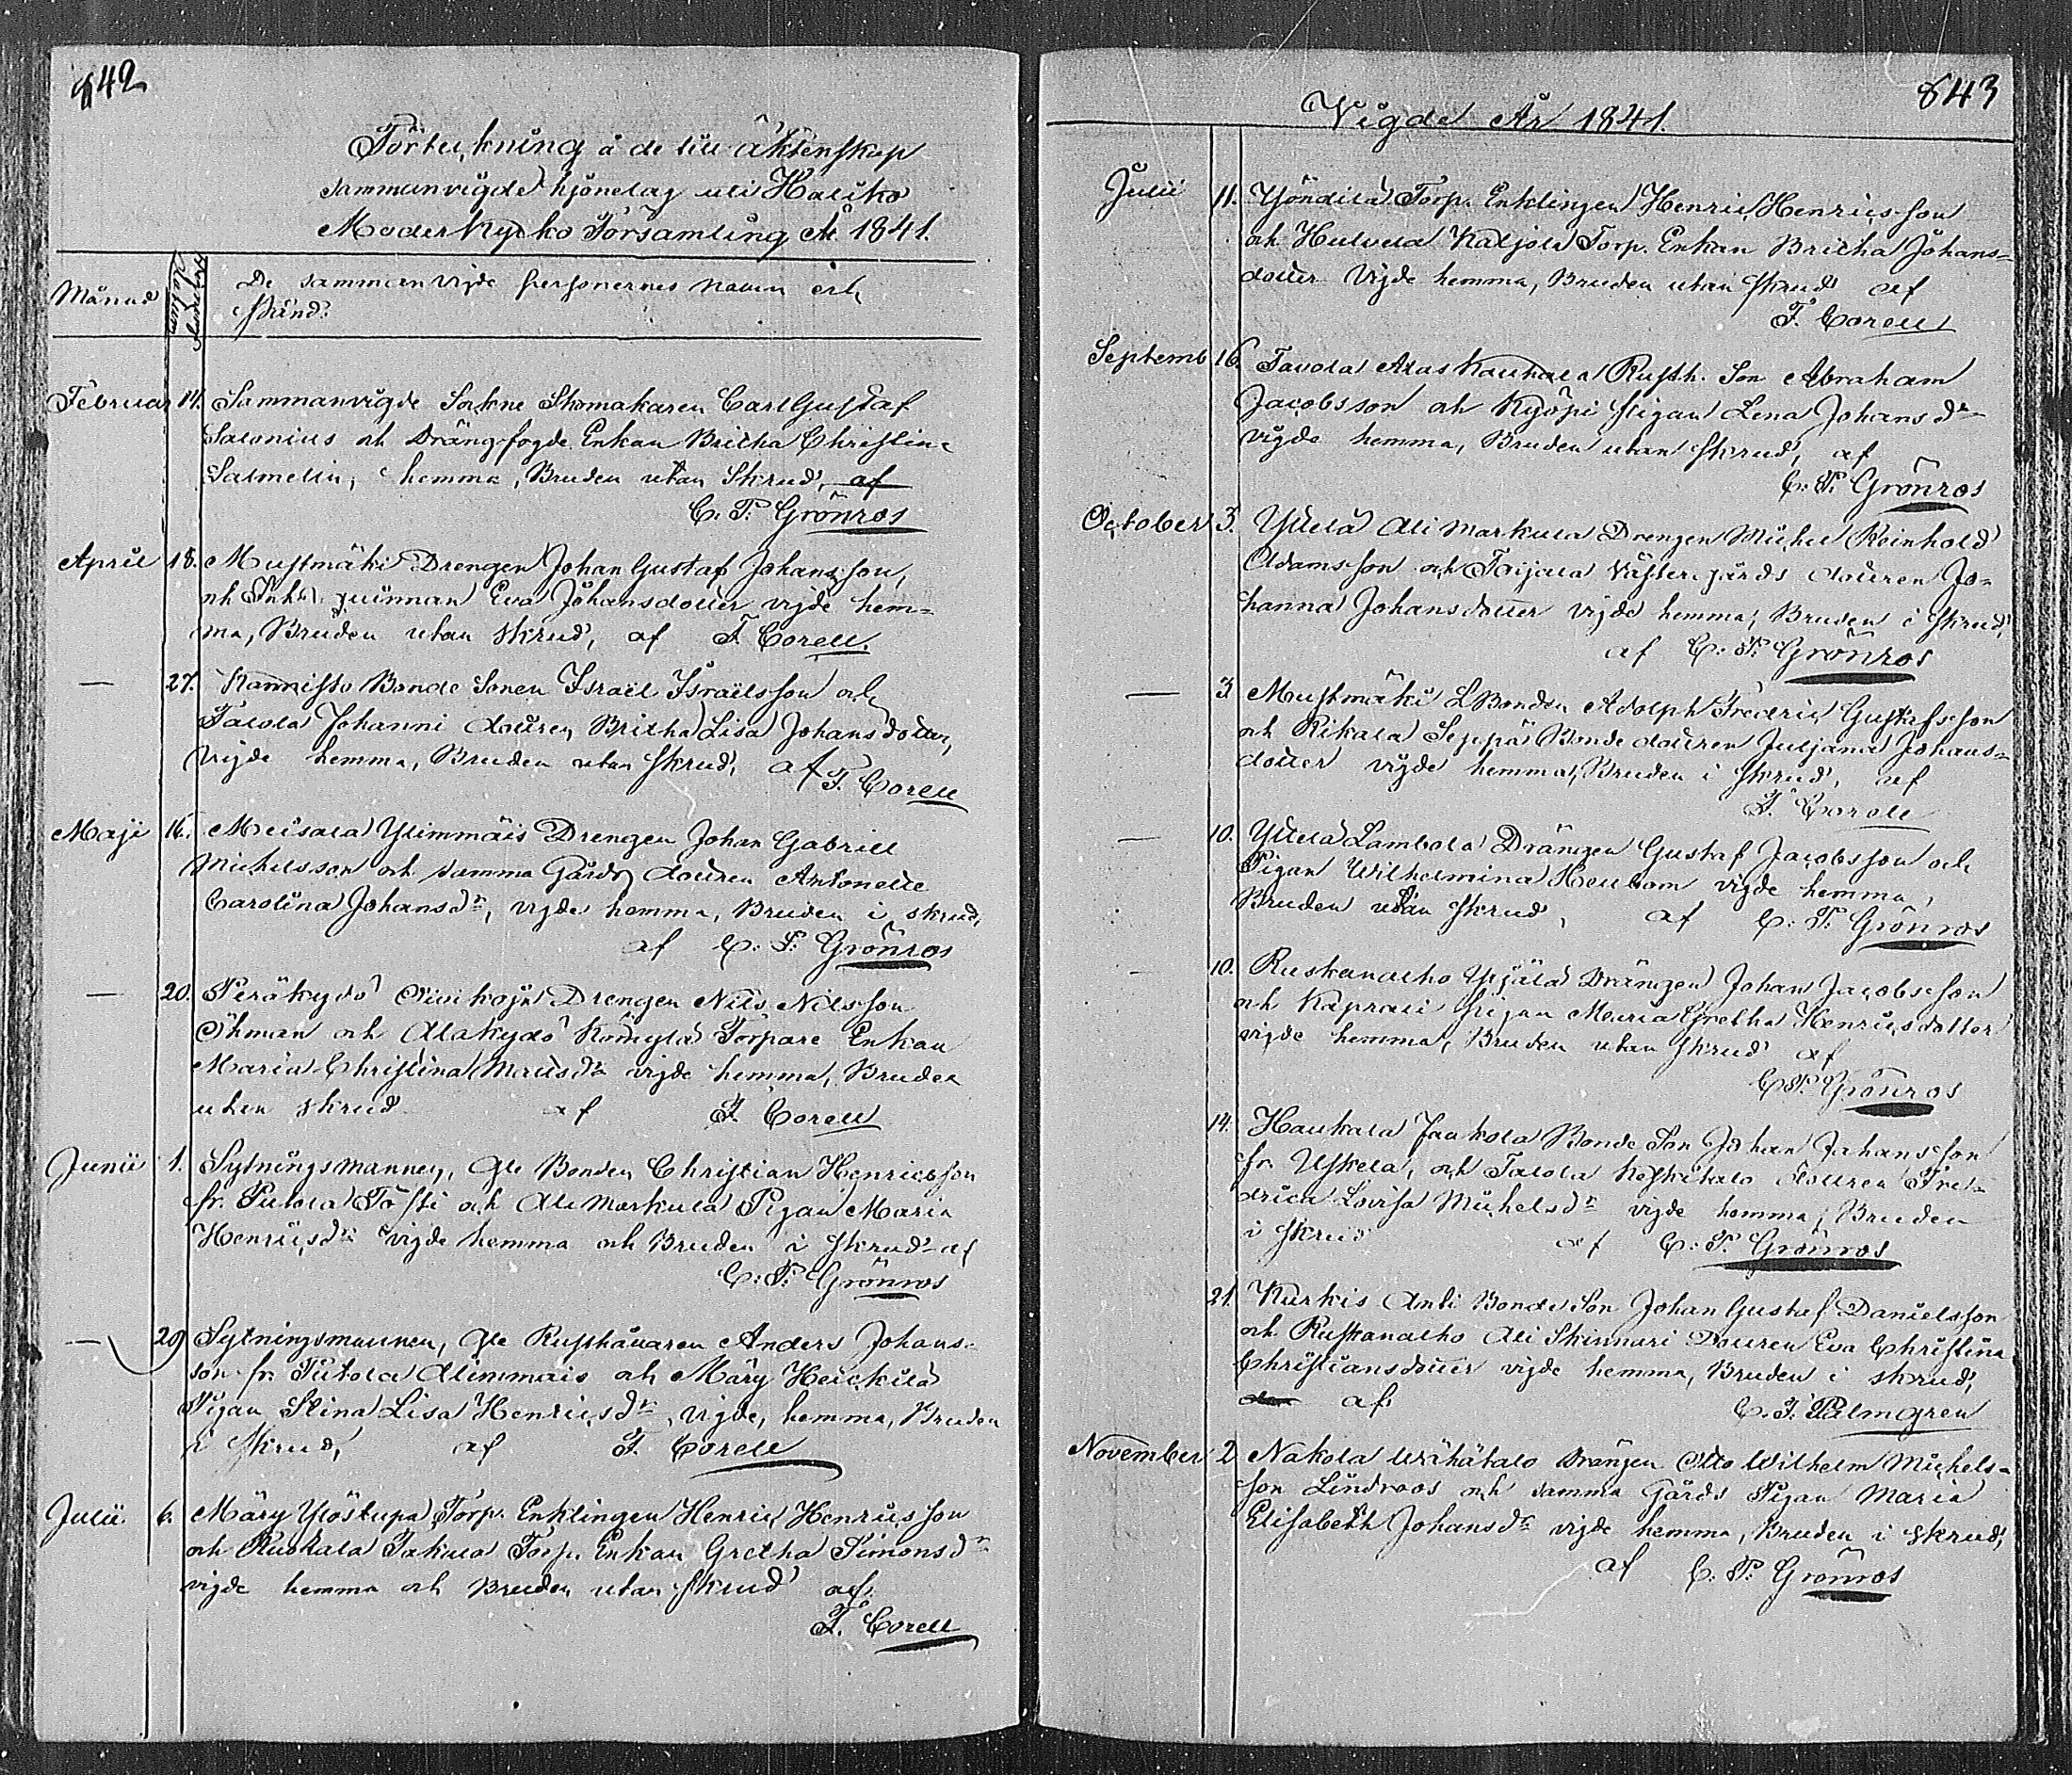 842
Förteckning å de till äktenskap
sammanvigde hjonelag uti Haliko
Moderkyrko Församling År 1841.
Månad
De sammanvigde personernes namn och
stånd.
Februar 14. Sammanvigde Sockne Skomakaren Carl Gustaf
Salonius och Drängfogde Enkan Britha Christina
Salmelin, hemma, Bruden utan Skrud, af
C. P. Grönros
April 18. Mustmäki Drengen Johan Gustaf Johansson,
och Inh. quinnan Eva Johansdotter vigde hem-
ma, Bruden utan skrud, af F. Corell.
— 27. Kannisto Bonde Sonen Israel Israelsson och
Talola Johanni dottren Britha Lisa Johansdotter,
vigde hemma, Bruden utan skrud, af
F. Corell
Maji 16. Meisala Ylimmäis Drengen Johan Gabriell
Michelsson och samma Gårds dottren Antonette
Carolina Johansdr, vigde hemma, Bruden i skrud,
af C. P. Grönros
— 20. Peräkylö Drengen Nils Nilsson
Öhman och Alakylö Torpare Enkan
Maria Christina Matsdr vigde hemma, Bruden
utan skrud af F. Corell
Junii 1. Sytningsmannen, Gle Bonden Christian Henricsson
fr. och Ali Markula Pigan Maria
Henricsdr vigde hemma och Bruden i skrud af
C. P. Grönros
— 29 Sytningsmannen, Gle Rusthållaren Anders Johans-
son fr. Alimmais och Märy Heickilä
Pigan Stina Lisa Henricsdr, vigde, hemma, Bruden
i skrud, af F. Corell
Julii 6. Märy Ylöstupa Torp. Enklingen Henric Henricsson
och Ruokala Torp. Enkan Gretha Simonsdr
vigde hemma och Bruden utan skrud af
F. Corell
843
Vigde År 1841.
Julii 11. Torp. Enklingen Henric Henricsson
och Torp. Enkan Britha Johans-
dotter vigde hemma, Bruden utan skrud af
F. Corell
Septemb 16. Tavola Alas Kaukala Rusth. Son Abraham
Jacobsson och pigan Lena Johansdr
vigde hemma, Bruden utan skrud, af
C. P. Grönros
October 3. Yttelä Ali Markula Drengen Michel Reinhold
Adamsson och Toijala Västergårds dottren Jo-
hanna Johansdotter vigde hemma, Bruden i skrud,
af C. P. Grönros
— 3 Mustmäki LBonden Adolph Fredric Gustafsson
och Rikala Seppä Bonde dottren Juljana Johans-
dotter vigde hemma, Bruden i skrud, af
F. Corell
— 10. Yttelä Lambola Drängen Gustaf Jacobsson och
Pigan Wilhelmina vigde hemma,
Bruden utan skrud, af C. P. Grönros
— 10. Ruskanatho Yrjälä Drängen Johan Jacobsson
och Kaprali pigan Maria Gretha Henricsdotter
vigde hemma, Bruden utan skrud af
C. P. Grönros
14. Haukala Jaukola Bonde Son Johan Johansson
fr. Uskela, och Talola dottren Fre-
drica Lovisa Michelsdr vigde hemma, Bruden
i skrud af C. P. Grönros
21. Kurkis Anti Bonde Son Johan Gustaf Danielsson
och Ruskanatho Ali Skinnari Dottren Eva Christina
Christiansdotter vigde hemma, Bruden i skrud,
af C. J. Palmgren
November 2 Nakola Wähätalo Drängen Otto Wilhelm Michels-
son Lindroos och samma Gårds Pigan Maria
Elisabeth Johansdr vigde hemma, Bruden i skrud,
af C. P. Grönros